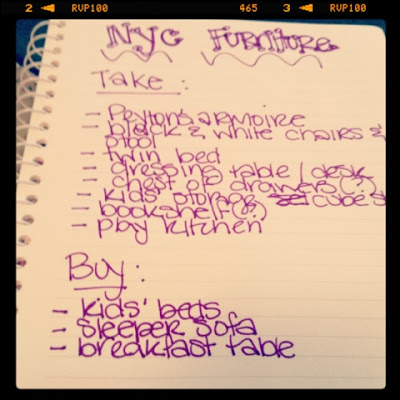 2 ◀ RVP100 465 3 ◀ RVP100
NYC FURNITURE
Take :
- Peyton's armoire
- black & white chairs &
stool
- twin bed
- dressing table / desk
- chest of drawers (?)
- kids' storage cubes
- bookshelf (?)
- play kitchen
Buy :
- kids' beds
- sleeper sofa
- breakfast table